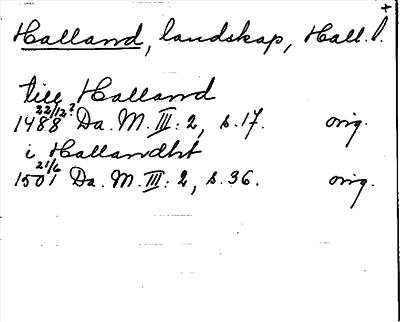 +
Halland, landskap, Hall. l.
till Halland
22/12?
1488 Da. M. III: 2, s. 17. orig.
i Hallandht
21/6
1501 Da. M. III: 2, s. 36. orig.